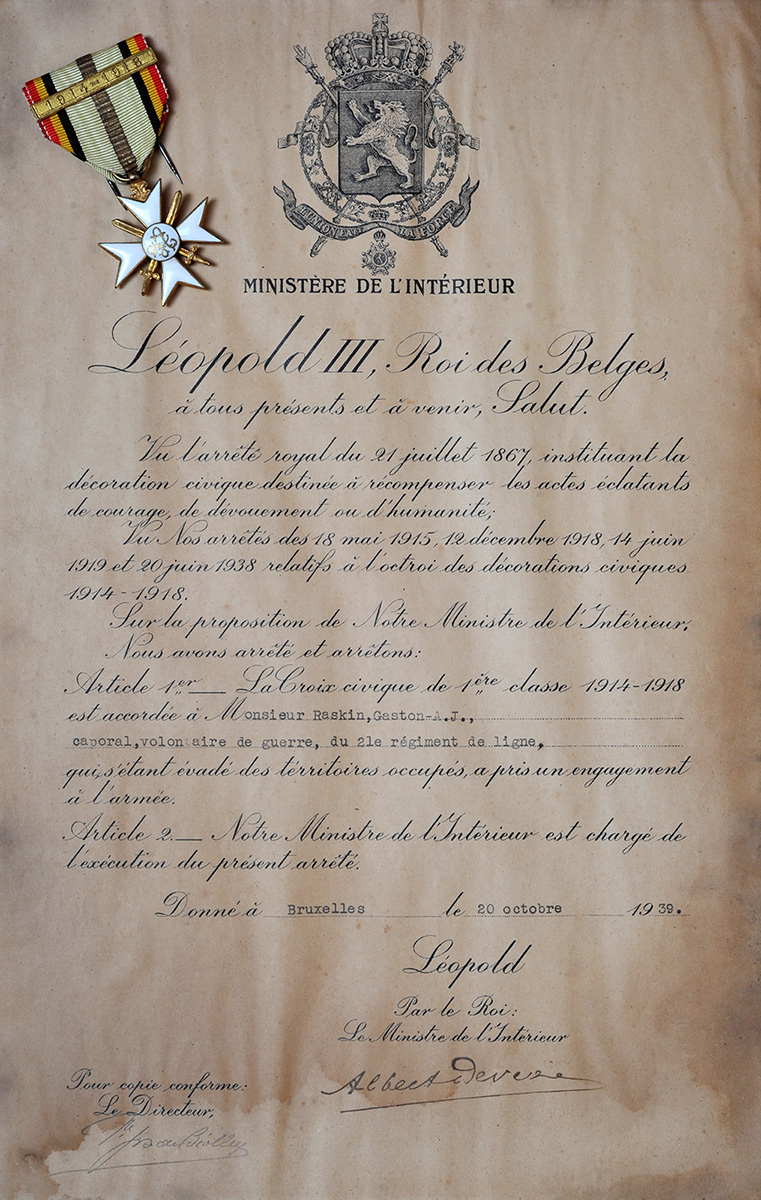 1914-1918
L'UNION FAIT LA FORCE
MINISTÈRE DE L'INTÉRIEUR
Léopold III, Roi des Belges,
à tous présents et à venir, Salut.
Vu l'arrêté royal du 21 juillet 1867, instituant la
décoration civique destinée à récompenser les actes éclatants
de courage, de dévouement ou d'humanité;
Vu Nos arrêtés des 18 mai 1915, 12 décembre 1918, 14 juin
1919 et 20 juin 1938 relatifs à l'octroi des décorations civiques
1914-1918.
Sur la proposition de Notre Ministre de l'Intérieur.
Nous avons arrêté et arrêtons:
Article 1er — La Croix civique de 1ère classe 1914-1918
est accordée à Monsieur Raskin, Gaston-A.J.,
caporal, volontaire de guerre, du 21e régiment de ligne,
qui, s'étant évadé des térritoires occupés, a pris un engagement
à l'armée.
Article 2. — Notre Ministre de l'Intérieur est chargé de
l'exécution du présent arrêté.
Donné à Bruxelles le 20 octobre 1939.
Léopold
Par le Roi:
Le Ministre de l'Intérieur
Albert Devèze
Pour copie conforme:
Le Directeur,